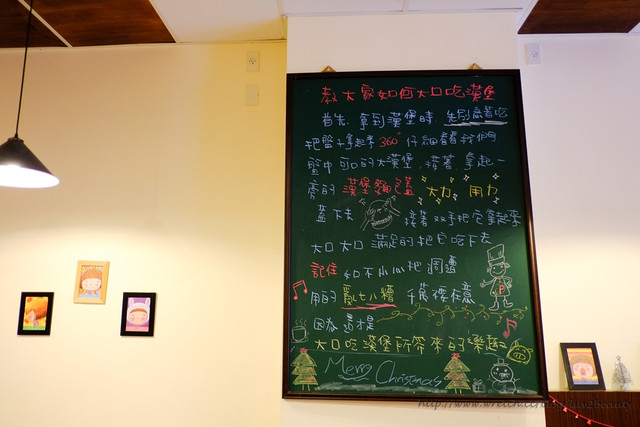 教大家如何大口吃漢堡
首先, 拿到漢堡時, 先別急著吃
把盤子拿起來 360° 仔細看看我們
盤中可口的大漢堡, 接著, 拿起一
旁的 漢堡麵包蓋 大力, 用力
蓋下去 接著 双手把它拿起來
大口大口 滿足的把它吃下去
記住 如不小心把 周邊
用的 亂七八糟 千萬 在意
因為 這才是
大口吃漢堡所帶來的樂趣
Merry Christmas